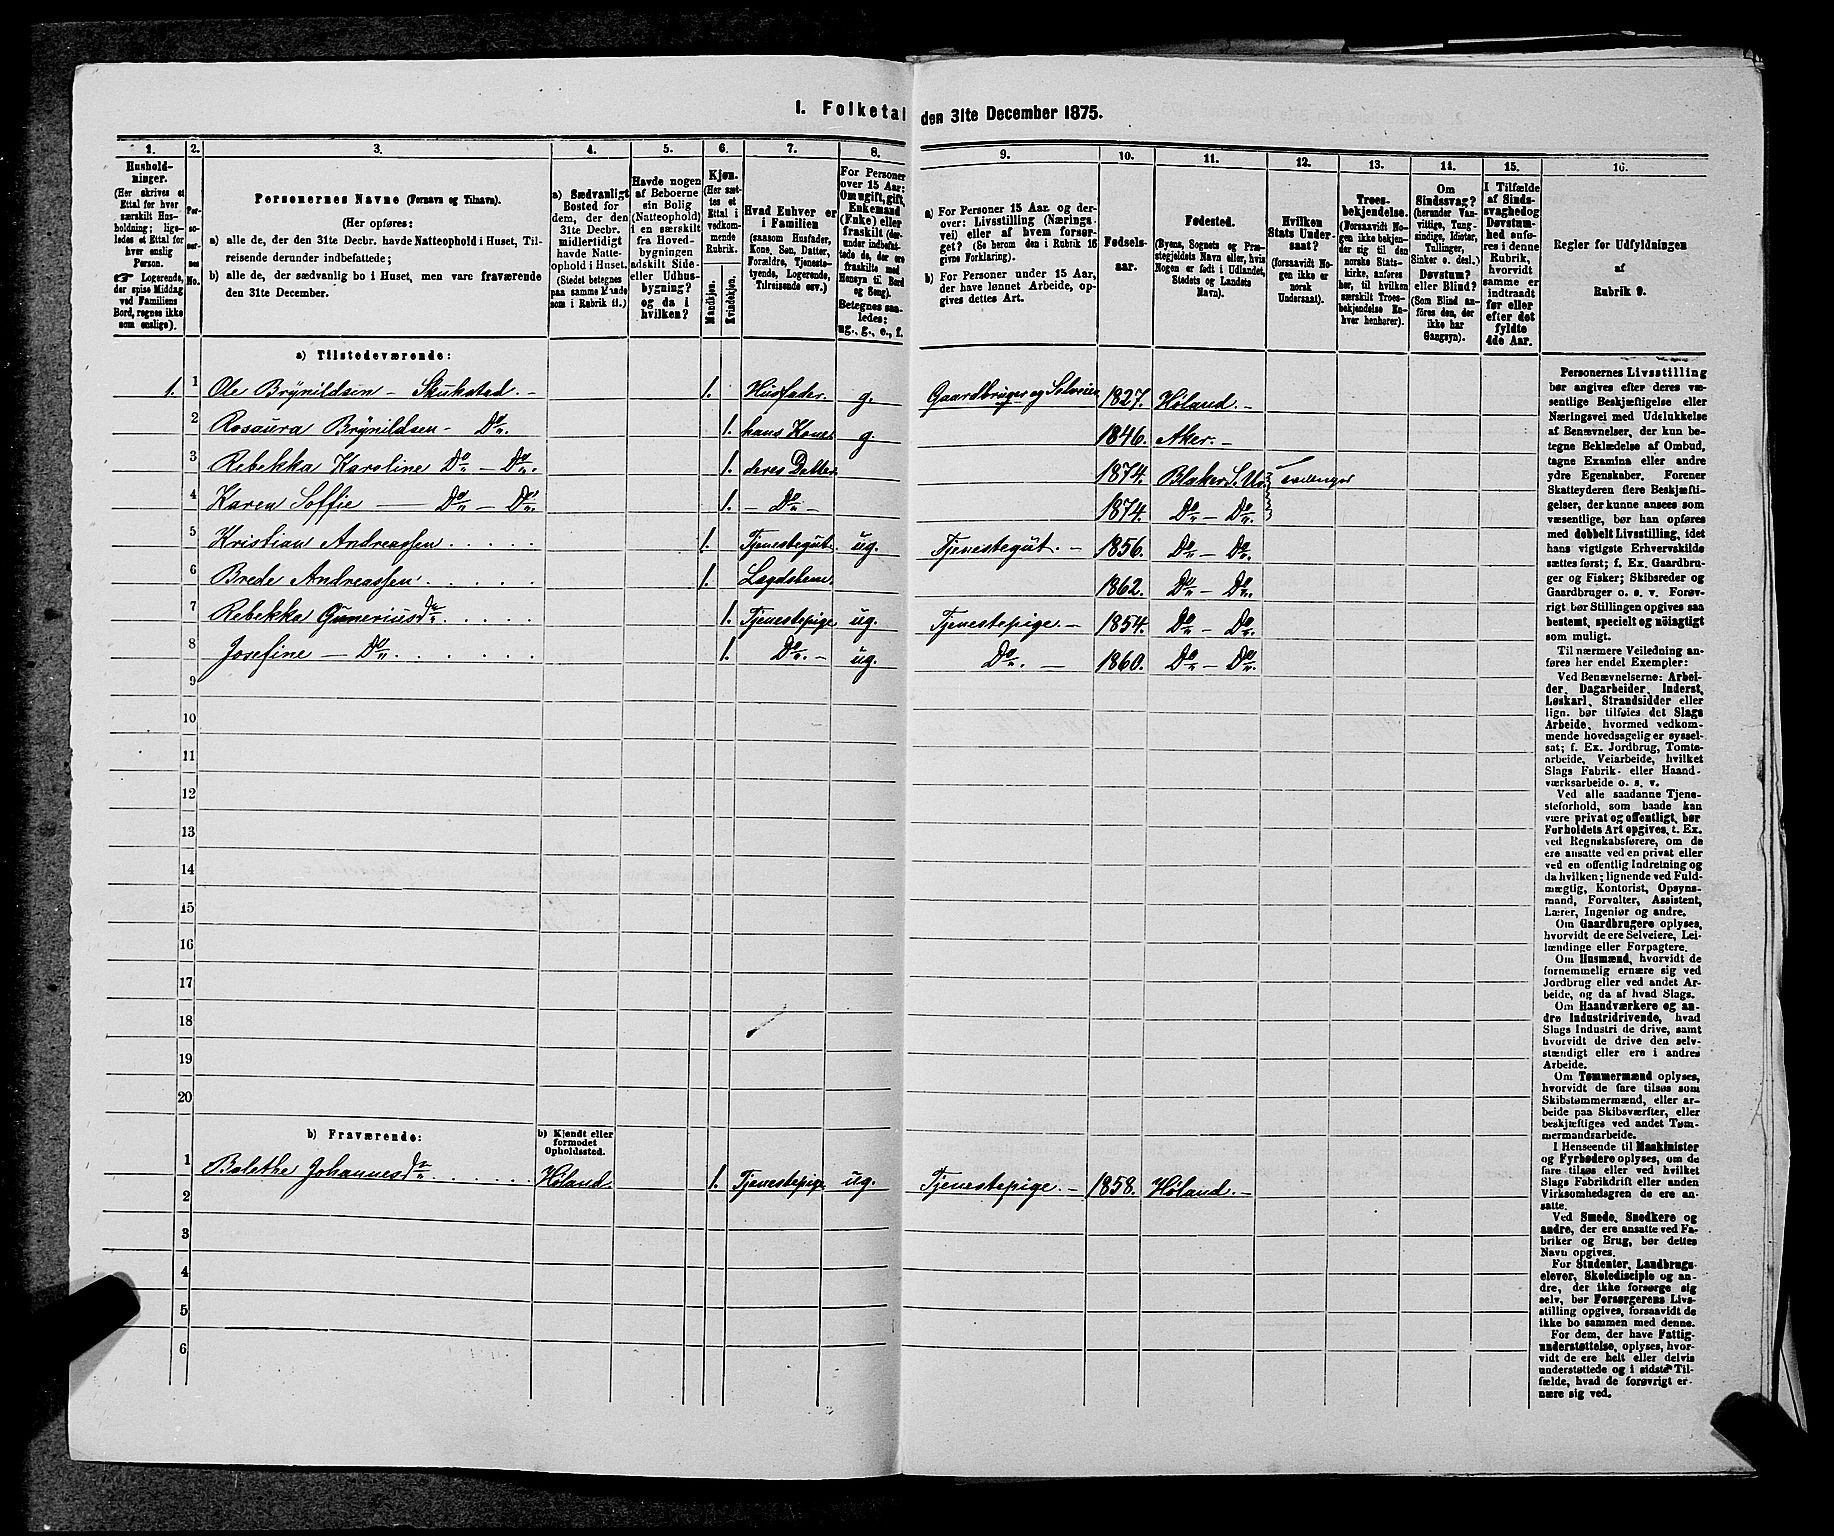 I. Folketal den 31te December 1875.
1. 2. 3. 4. 5. 6. 7. 8. 9. 10. 11. 12. 13. 14. 15. 16.
Hushold-
ninger.
(Her skrives et
Ettal for hver
særskilt Hus-
holdning; lige-
ledes et Ettal for
hver enslig
Person.
☞ Logerende,
der spise Middag
ved Familiens
Bord, regnes ikke
som enslige).
Personernes No.
Personernes Navne (Fornavn og Tilnavn).
(Her opføres:
a) alle de, der den 31te Decbr. havde Natteophold i Huset, Til-
reisende derunder indbefattede;
b) alle de, der sædvanlig bo i Huset, men vare fraværende
den 31te December.
a) Sædvanligt
Bosted for
dem, der den
31te Decbr.
midlertidigt
havde Natte-
ophold i Huset.
(Stedet betegnes
paa samme Maade
som i Rubrik 11.)
Havde nogen
af Beboerne
sin Bolig
(Natteophold)
i en særskilt
fra Hoved-
bygningen
adskilt Side-
eller Udhus-
bygning?
og da i
hvilken?
Kjøn.
(Her sæt-
tes et
Ettal i
vedkom-
mende
Rubrik.
Mandkjøn.
Kvindekjøn.
Hvad Enhver er
i Familien
(saasom Husfader,
Kone, Søn, Datter,
Forældre, Tjeneste-
tyende, Logerende,
Tilreisende osv.)
For Personer
over 15 Aar:
Om ugift, gift,
Enkemand
(Enke) eller
fraskilt (der-
under indbefat-
tede de, der ere
fraskilte med
Hensyn til Bord
og Seng).
Betegnes saa-
ledes:
ug., g., e., f.
a) For Personer 15 Aar og der-
over: Livsstilling (Nærings-
vei) eller af hvem forsør-
get? (Se herom den i Rubrik 16
givne Forklaring).
b) For Personer under 15 Aar,
der have lønnet Arbeide, op-
gives dettes Art.
Fødsels-
aar.
Fødested.
(Byens, Sognets og Præ-
stegjeldets Navn eller, hvis
Nogen er født i Udlandet,
Stedets og Landets
Navn).
Hvilken
Stats Under-
saat?
(forsaavidt No-
gen ikke er
norsk
Undersaat).
Troes-
bekjendelse.
(Forsaavidt No-
gen ikke bekjen-
der sig til den
norske Stats-
kirke, anføres
her, til hvilken
særskilt Troes-
bekjendelse En-
hver henhører).
Om
Sindssvag?
(herunder Van-
vittige, Tung-
sindige, Idioter,
Tullinger,
Sinker o. desl.)
Døvstum?
eller Blind?
(Som Blind an-
føres den, der
ikke har
Gangsyn).
I Tilfælde
af Sinds-
svaghed og
Døvstum-
hed anfø-
res i denne
Rubrik,
hvorvidt
samme er
indtraadt
før eller
efter det
fyldte
4de Aar.
Regler for Udfyldningen
af
Rubrik 9.
a) Tilstedeværende:
1. 1 Ole Brynildsen - Skukstad. - 1. Husfader. g. Gaardbruger og Selveier 1827. Høland. -
2 Rosaura Brynildsen - Do. 1. hans Kone. g. 1846. Aker. -
3 Rebekka Karoline Do - Do. 1. deres Datter 1874. Blaker S. Ur. } tvillinger
4 Karen Soffie — Do - Do. 1. - Do - 1874. Do - Do.
5 Kristian Andreassen . . . . . 1. Tjenestegut. ug. Tjenestegut. - 1856. Do - Do.
6 Brede Andreassen . . . . . 1. Lægdslem. 1862. Do - Do.
7 Rebekka Gunneriusdr . . . . 1. Tjenestepige ug. Tjenestepige - 1854. Do - Do.
8 Josefine — Do . . . . . 1. Do. - ug. Do. — 1860. Do - Do.
9
10
11
12
13
14
15
16
17
18
19
20
b) Fraværende:
b) Kjendt eller
formodet
Opholdssted.
1 Balethe Johannesdr . . . . Høland. 1. Tjenestepige ug. Tjenestepige. - 1858. Høland. -
2
3
4
5
6
Personernes Livsstilling
bør angives efter deres væ-
sentlige Beskjæftigelse eller
Næringsvei med Udelukkelse
af Benævnelser, der kun be-
tegne Beklædelse af Ombud,
tagne Examina eller andre
ydre Egenskaber. Forener
Skatteyderen flere Beskjæfti-
gelser, der kunne ansees som
væsentlige, bør han opføres
med dobbelt Livsstilling, idet
hans vigtigste Erhvervskilde
sættes først; f. Ex. Gaardbru-
ger og Fisker; Skibsreder og
Gaardbruger o. s. v. Forøv-
rigt bør Stillingen opgives saa
bestemt, specielt og nøiagtigt
som muligt.
Til nærmere Veiledning an-
føres her endel Exempler:
Ved Benævnelserne: Arbei-
der, Dagarbeider, Inderst,
Løskarl, Strandsidder eller
lign. bør tilføies det Slags
Arbeide, hvormed vedkom-
mende hovedsagelig er syssel-
sat; f. Ex. Jordbrug, Tomte-
arbeide, Veiarbeide, hvilket
Slags Fabrik- eller Haand-
værksarbeide o. s. v.
Ved alle saadanne Tjene-
steforhold, som baade kan
være privat og offentligt, bør
Forholdets Art opgives, t. Ex.
ved Regnskabsførere, om de
ere ansatte ved en privat eller
ved en offentlig Indretning og
da hvilken; lignende ved Fuld-
mægtig, Kontorist, Opsyns-
mand, Forvalter, Assistent,
Lærer, Ingeniør og andre.
Om Gaardbrugere oplyses,
hvorvidt de ere Selveiere, Lei-
lændinge eller Forpagtere.
Om Husmænd, hvorvidt de
fornemmelig ernære sig ved
Jordbrug eller ved andet Ar-
beide, og da af hvad Slags.
Om Haandværkere og an-
dre Industridrivende, hvad
Slags Industri de drive, samt
hvorvidt de drive den selv-
stændigt eller ere i andres
Arbeide.
Om Tømmermænd oplyses,
hvorvidt de fare tilsøs som
Skibstømmermænd, eller ar-
beide paa Skibsværfter, eller
beskjæftiges ved andet Tøm-
mermandsarbeide.
I Henseende til Maskinister
og Fyrbødere oplyses, om de
fare tilsøs eller ved hvilket
Slags Fabrikdrift eller anden
Virksomhedsgren de ere an-
satte.
Ved Smede, Snedkere og
andre, der ere ansatte ved Fa-
briker og Brug, bør dettes
Navn opgives.
For Studenter, Landbrugs-
elever, Skoledisciple og an-
dre, der ikke forsørge sig
selv, bør Forsørgerens Livs-
stilling opgives, forsaavidt de
ikke bo sammen med denne.
For dem, der have Fattig-
understøttelse, oplyses, hvor-
vidt de ere helt eller delvis
understøttede og i sidste Til-
fælde, hvad de forøvrigt er-
nære sig ved.